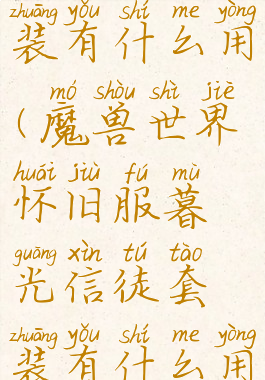 zhuāng yǒu shí me yòng
装有什么用
mó shòu shì jiè
(魔兽世界
huái jiù fú mù
怀旧服暮
guāng xìn tú tào
光信徒套
zhuāng yǒu shí me yòng
装有什么用